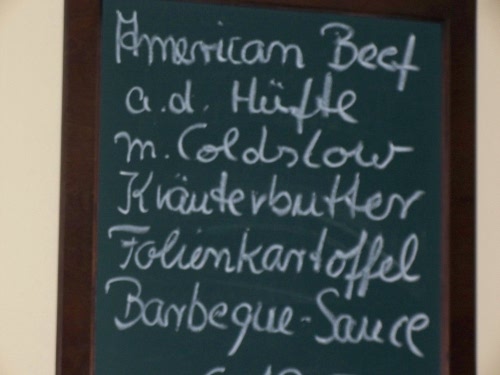 American Beef
a.d. Hüfte
m. Coldslow
Kräuterbutter
Folienkartoffel
Barbeque-Sauce